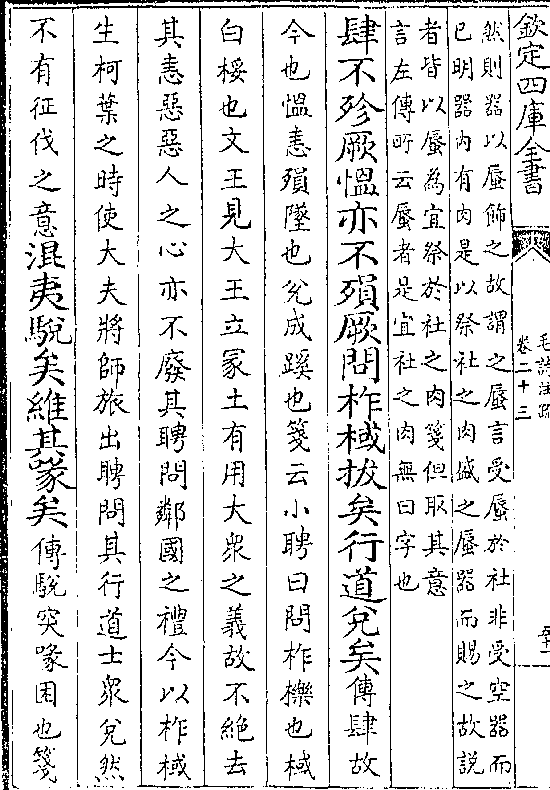 欽定四庫全書
毛詩注疏
卷二十三
然則器以蜃飾之故謂之蜃言受蜃於社非受空器而
已明器內有肉是以祭社之肉盛之蜃器而賜之故說
者皆以蜃為宜祭於社之肉箋但取其意
言左傳所云蜃者是宜社之肉無曰字也
肆不殄厥愠亦不殞厥問柞棫拔矣行道兌矣傳肆故
今也愠恚殞墜也兌成蹊也箋云小聘曰問柞櫟也棫
白桵也文王見大王立冢土有用大衆之義故不絶去
其恚惡惡人之心亦不廢其聘問鄰國之禮今以柞棫
生柯葉之時使大夫將師旅出聘問其行道士衆兌然
不有征伐之意混夷駾矣維其喙矣傳駾突喙困也箋